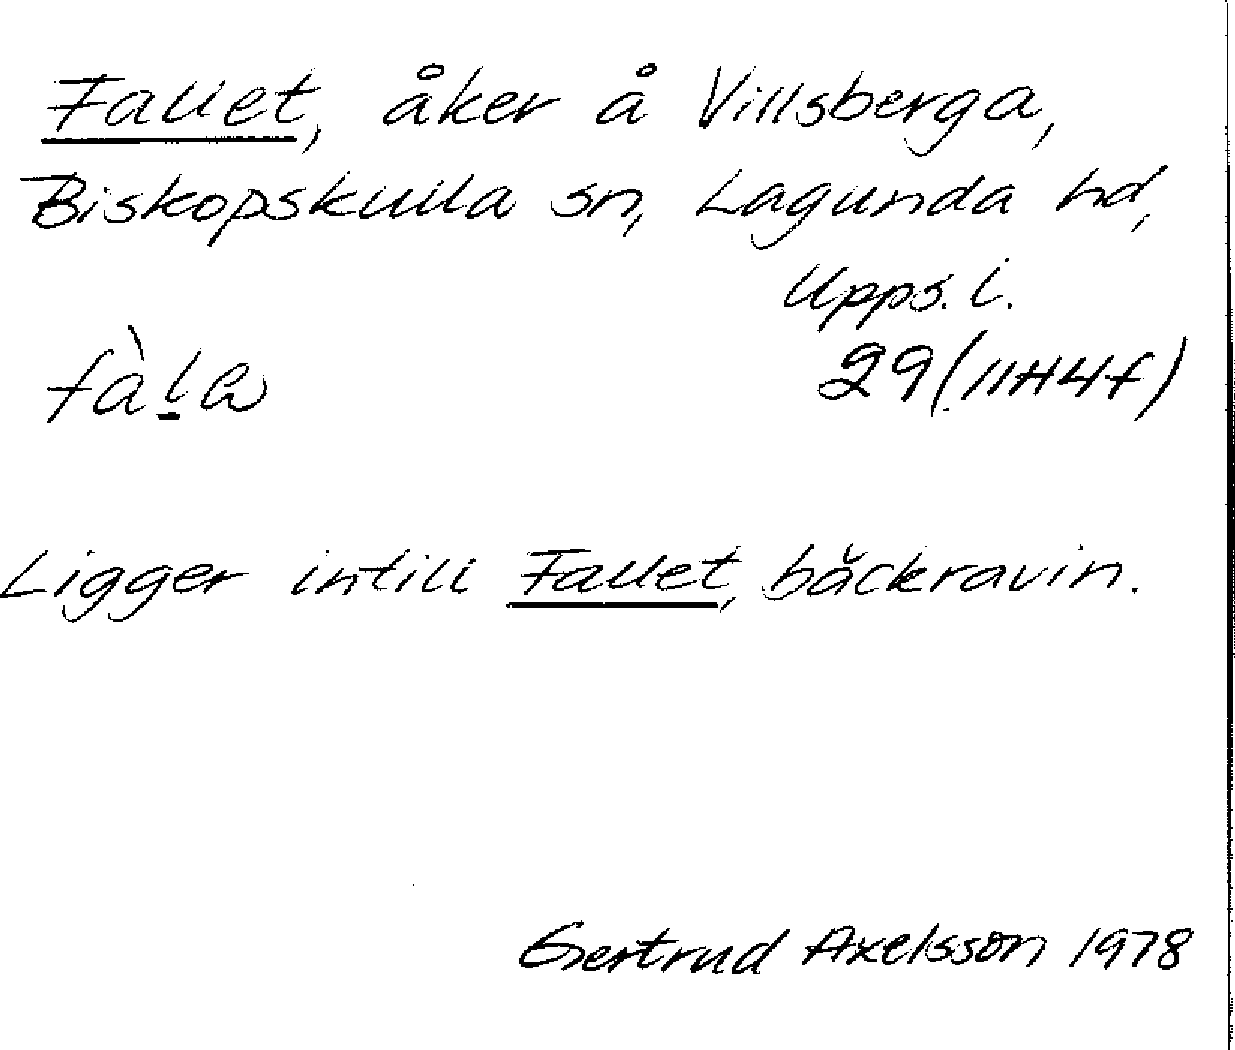 Fallet, åker å Villsberga,
Biskopskulla sn, Lagunda hd,
Upps. l.
29 (11H4f)
Ligger intill Fallet, bäckravin.
Gertrud Axelsson 1978